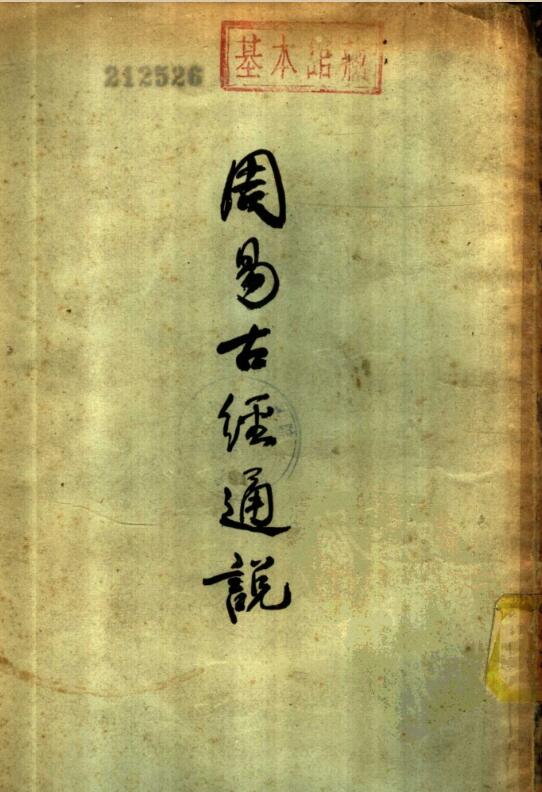 212526
基本館藏
周易古經通説